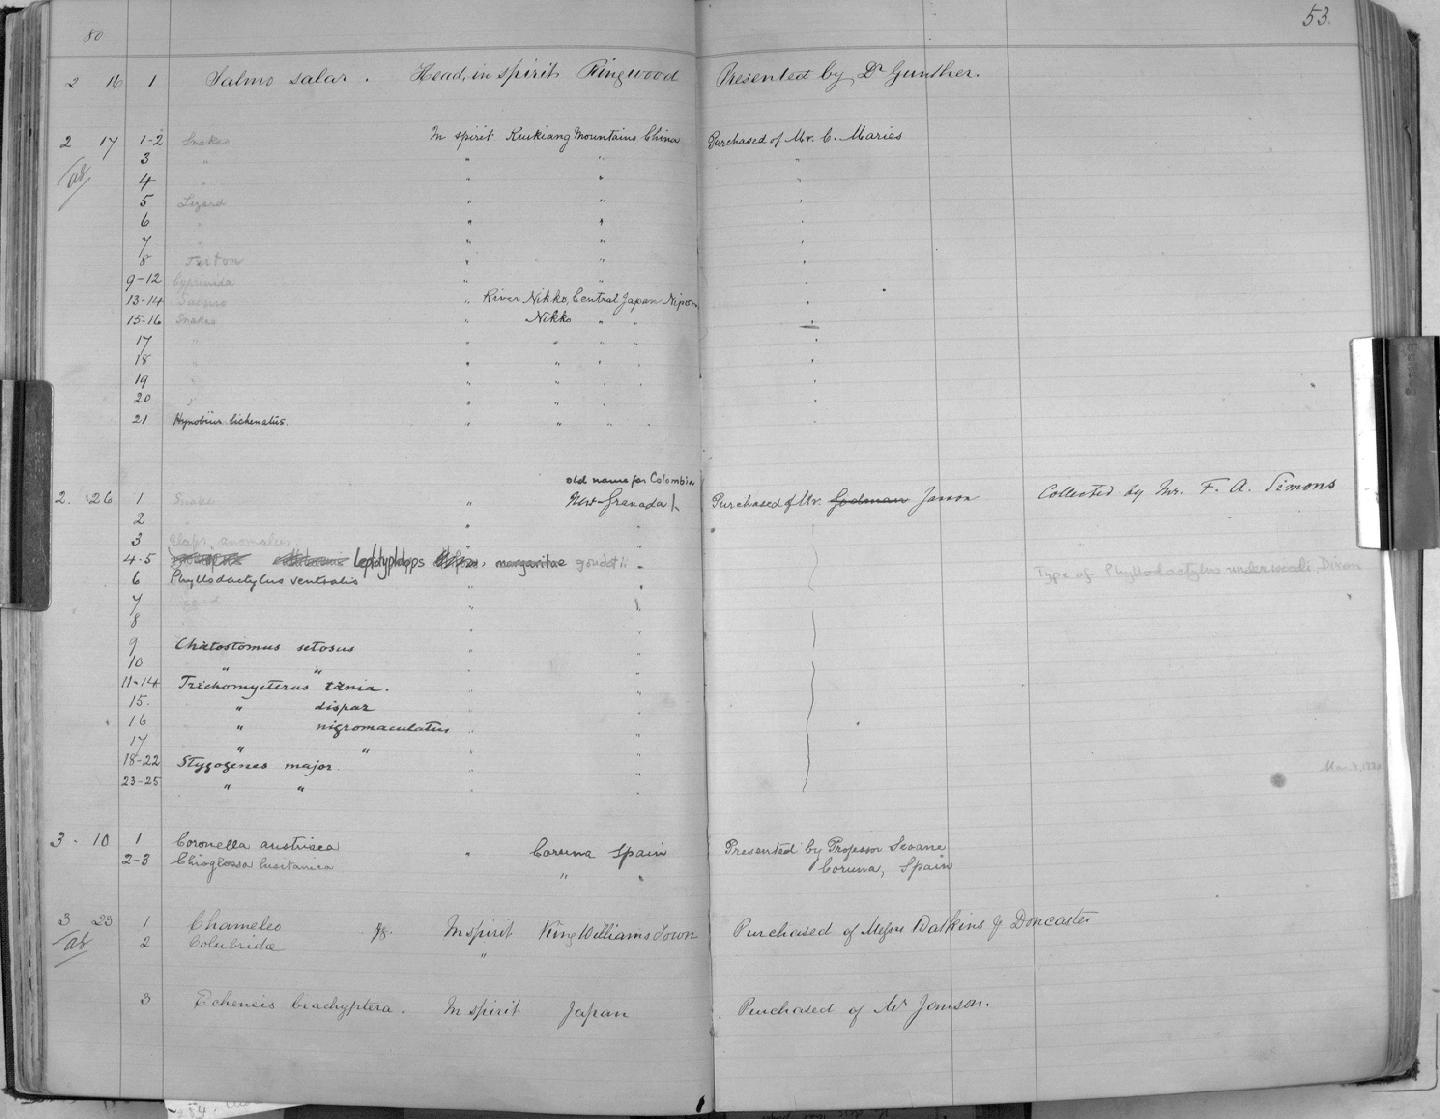 80
53.
2 16 1 Salmo salar. Head, in spirit Ringwood Presented by Dr Gunther.
2 17 1-2 Snakes In spirit Kiukiang Mountains China Purchased of Mr. C. Maries
3 " " " "
4 " " " "
5 Lizard " " "
6 " " " "
7 " " " "
8 Triton " "
9-12 Cyprinida " "
13-14 Salmo " River Nikko, Central Japan Nipon
15-16 Snakes " Nikko " "
17 " " " " "
18 " " " "
19 " " " "
20 " " "
21 Hynobius lichenatus. " " " "
old name for Colombia
2. 26 1 Snake " New Granada Purchased of Mr. Godman Janson Collected by Mr. F. A. Simons
2 " "
3 Elaps anomalus " "
4-5 Leptotyphlops margaritae goudotii "
6 Phyllodactylus ventralis " Type of Phyllodactylus underwoodi, Dixon
7 " "
8 " "
9 Chætostomus setosus " "
10 " " " "
11-14 Trichomycterus tænia. " "
15. " dispar " "
16 " nigromaculatus " "
17 " " "
18-22 Stygogenes major. " "
23-25 " " " "
3 - 10 1 Coronella austriaca " Coruna Spain Presented by Professor Seoane
2-3 Chioglossa lusitanica " Coruna, Spain
3 23 1 Chameleo In spirit King Williams Town Purchased of Messrs Watkins & Doncaster
2 Colubridæ "
3 Echeneis brachyptera. In spirit Japan Purchased of Mr Janson.